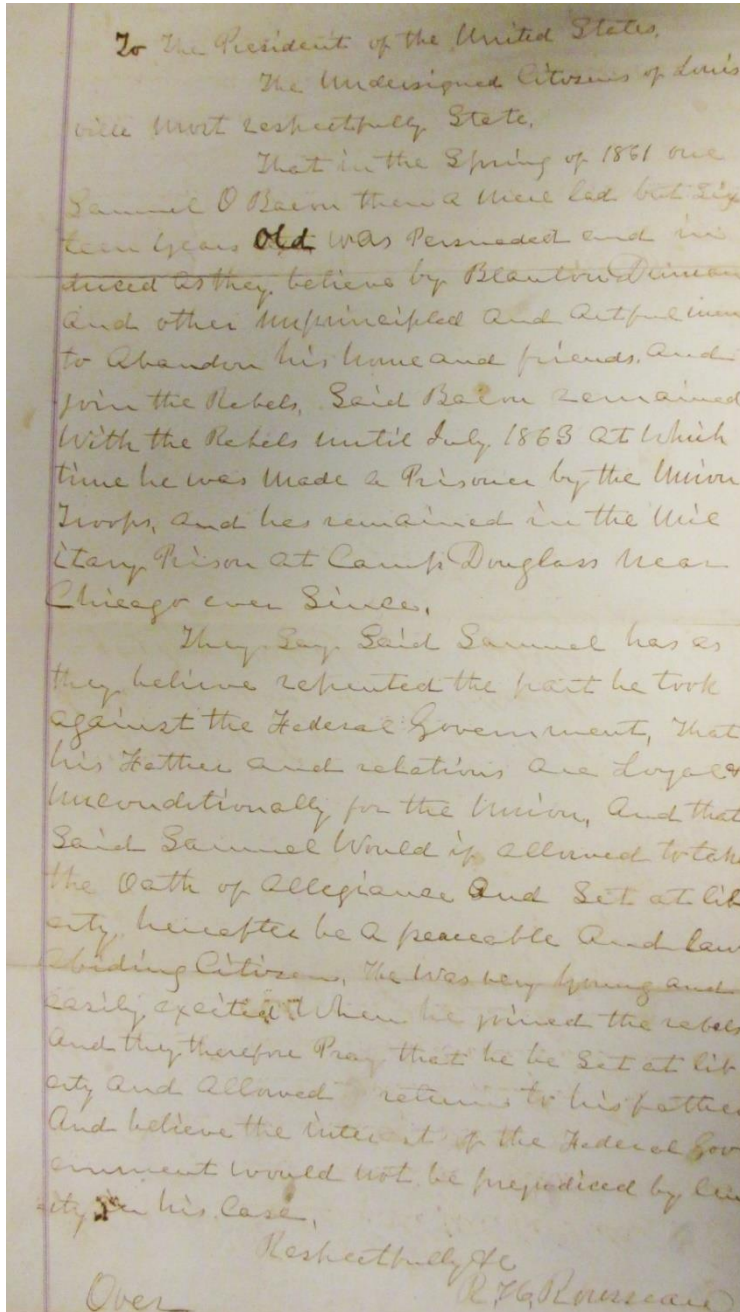 To The President of the United States.
The Undersigned Citizens of Louis
ville Most respectfully State.
That in the Spring of 1861 one
Samuel O Bacon then a mere lad but Six
teen years Old was Persuaded and in
duced as they believe by Blanton Duncan
And other unprincipled And Artful men
to Abandon his home and friends. And
join the Rebels. Said Bacon remained
With the Rebels until July 1863 at Which
time he was Made a Prisoner by the Union
Troops, and has remained in the Mil
itary Prison at Camp Douglass near
Chicago ever Since.
They Say Said Samuel has as
they believe repented the part he took
against the Federal Government, That
his Father and relations are Loyal &
Unconditionally for the Union, And that
Said Samuel Would if allowed to take
the Oath of Allegiance And Set at lib
erty, hereafter be a peaceable And law
abiding Citizen, He Was very Young and
easily excited When he joined the rebels
And they therefore Pray that he be Set at lib
erty and Allowed return to his father
And believe the interest of the Federal Gov
ernment Would not be prejudiced by len
ity in his Case.
Respectfully &c
R. H. Rousseau
Over